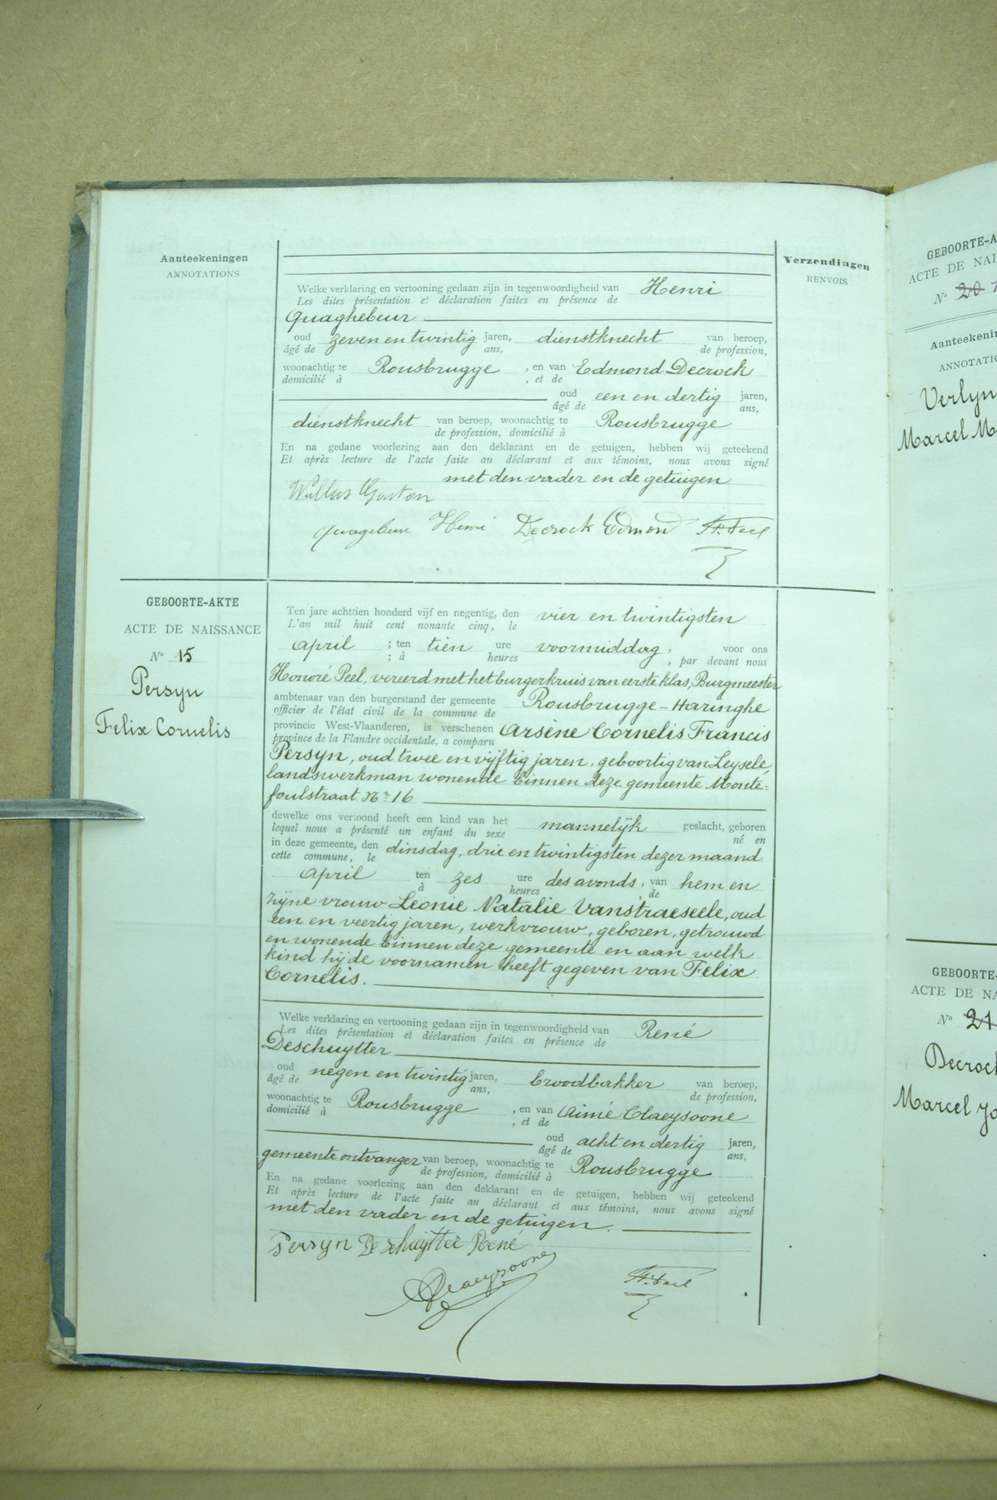 Aanteekeningen
ANNOTATIONS
Verzendingen
RENVOIS
Welke verklaring en vertooning gedaan zijn in tegenwoordigheid van Henri
Les dites présentation et déclaration faites en présence de
Quaghebeur
oud zeven en twintig jaren, dienstknecht van beroep,
âgé de ans, de profession,
woonachtig te Rousbrugge , en van Edmond Decrock
domicilié à , et de
oud een en dertig jaren,
âgé de ans,
dienstknecht van beroep, woonachtig te Rousbrugge
de profession, domicilié à
En na gedane voorlezing aan den deklarant en de getuigen, hebben wij geteekend
Et après lecture de l'acte faite au déclarant et aux témoins, nous avons signé
met den vader en de getuigen
Henri Decrock Edmond
GEBOORTE-AKTE
ACTE DE NAISSANCE
N° 15
Persyn
Felix Cornelis
Ten jare achttien honderd vijf en negentig, den vier en twintigsten
L'an mil huit cent nonante cinq, le
April ; ten tien ure voormiddag, voor ons
; à heures , par devant nous
Honoré Peel, vereerd met het burgerkruis van eerste klas, Burgmeester
ambtenaar van den burgerstand der gemeente Rousbrugge-Haringhe
officier de l'état civil de la commune de
provincie West-Vlaanderen, is verschenen Arsène Cornelis Francis
province de la Flandre occidentale, a comparu
Persyn, oud twee en vijftig jaren, geboortig van Leysele
landswerkman wonende binnen deze gemeente Monte-
foulstraat N° 16
dewelke ons vertoond heeft een kind van het mannelijk geslacht, geboren
lequel nous a présenté un enfant du sexe né en
in deze gemeente, den dinsdag, drie en twintigsten dezer maand
cette commune, le
April ten zes ure des avonds, van hem en
à heures de
zijne vrouw Leonie Natalie Vanstraeseele, oud
een en veertig jaren, werkvrouw, geboren, getrouwd
en wonende binnen deze gemeente en aan welk
kind hij de voornamen heeft gegeven van Felix
Cornelis.
Welke verklaring en vertooning gedaan zijn in tegenwoordigheid van René
Les dites présentation et déclaration faites en présence de
Deschuytter
oud negen en twintig jaren, broodbakker van beroep,
âgé de ans, de profession,
woonachtig te Rousbrugge , en van Aimé Claeysoone
domicilié à , et de
oud acht en dertig jaren,
âgé de ans,
gemeente ontvanger van beroep, woonachtig te Rousbrugge
de profession, domicilié à
En na gedane voorlezing aan den deklarant en de getuigen, hebben wij geteekend
Et après lecture de l'acte faite au déclarant et aux témoins, nous avons signé
met den vader en de getuigen.
Persyn Deschuytter René
Claeysoone H. Peel
GEBOORTE-A
ACTE DE NAI
N° 20
Aanteekenin
ANNOTATIO
Verlyn
Marcel M
GEBOORTE-
ACTE DE NA
N° 21
Decroc
Marcel Jo